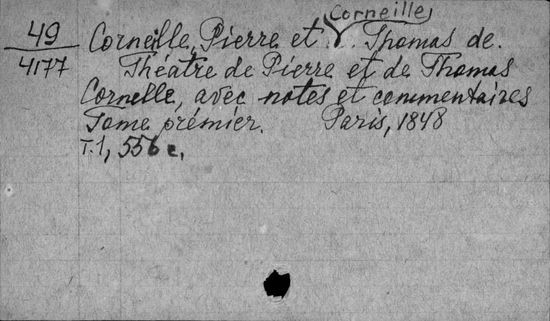 49
4177
Corneille
Corneille, Pierre et V. Thomas de.
Théatre de Pierre et de Thomas
Cornelle, avec notes et commentaires
Tome prémier. Paris, 1848
T.1, 556 c.